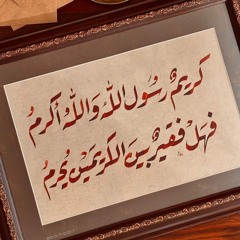 كريمٌ رسُول اللّٰه وَاللّٰهُ أكرمُ
فهَلْ فقيرٌ بينَ الكريمَيْن يُحرمُ